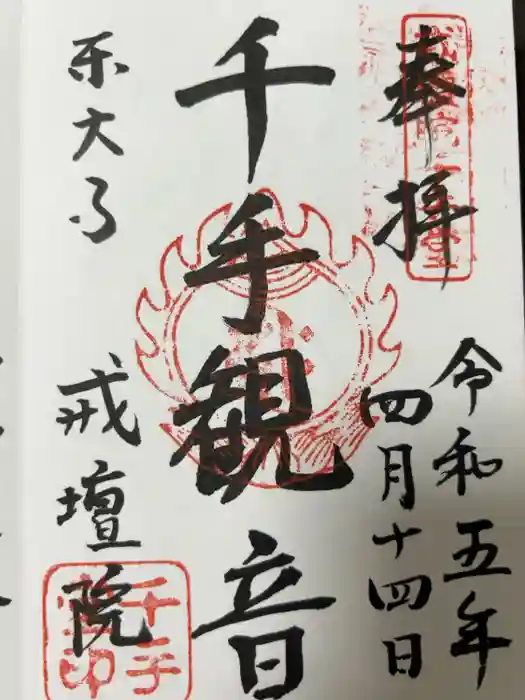 奉拝
令和五年
四月十四日
千手観音
东大寺
戒壇院